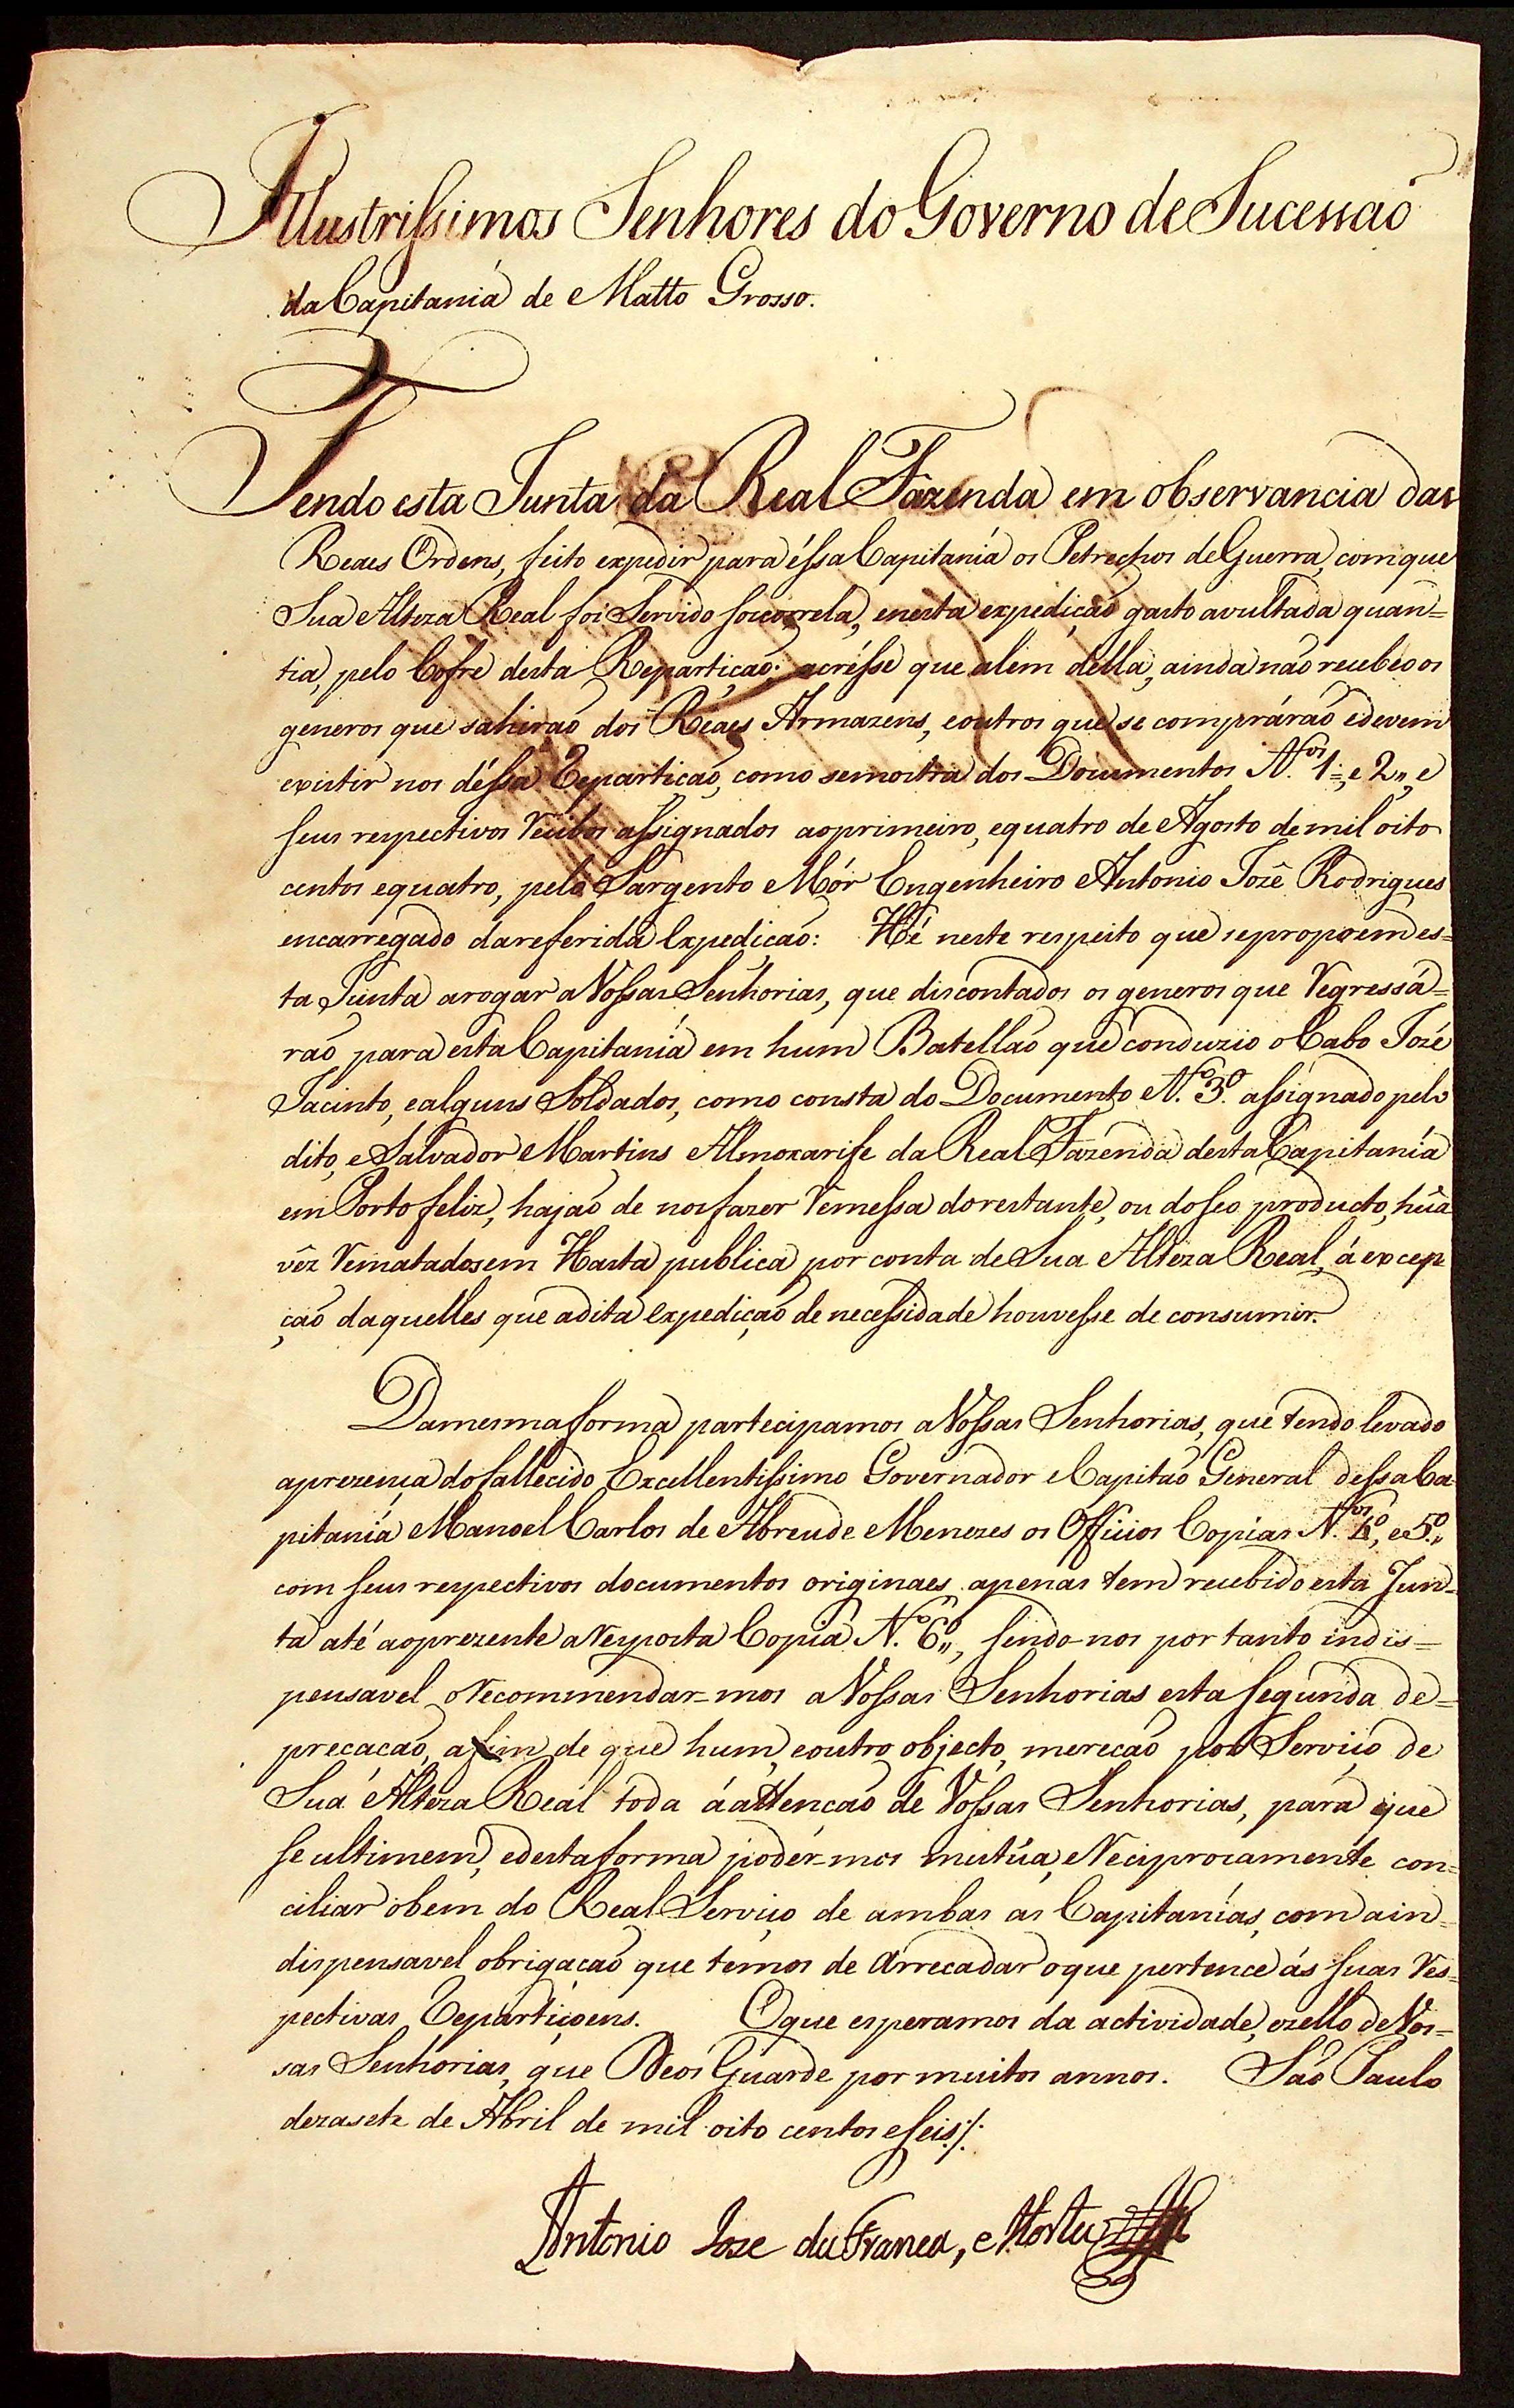 Illustrissimos Senhores do Governo de Sucessaõ
da Capitanía de Matto Grosso.
Tendo esta Junta da Real Fazenda em observancia das
Reaes Ordens, feito expedir para éssa Capitanía os Petrechos de Guerra, com que
Sua Alteza Real foi Servido socorrela, e nesta expediçaõ gasto avultada quan=
tia, pelo Cofre desta Repartiçaõ: acrésse que alem della, ainda naõ recebeo os
generos que sahiraõ dos Reaes Armazens, e outros que se comprárão e devem
existir nos déssa Repartiçaõ, como se mostra dos Documentos N.os 1=, e 2,, e
seus respectivos recibos assignados ao primeiro, e quatro de Agosto de mil oito
centos e quatro, pelo Sargento Mór Engenheiro Antonio Jozê Rodrigues
encarregado da referida Expediçaõ: Hé neste respeito que se propoem es=
ta Junta a rogar a Vossas Senhorias, que discontados os generos que regressá=
raõ para esta Capitanía em hum Batellaõ que conduzio o Cabo Jozé
Jacinto, e alguns Soldados, como consta do Documento N.º 3.º assignado pelo
dito, e Salvador Martins Almoxarife da Real Fazenda desta Capitanía
em Porto feliz, hajaõ de nos fazer remessa do restante, ou do seo producto, hũa
vêz rematados em Hasta publica por conta de Sua Alteza Real, á excep
çaõ daquelles que a dita expediçaõ de necessidade houvesse de consumir.
Da mesma forma partecipamos a Vossas Senhorias, que tendo levado
a prezença do fallecido Excellentissimo Governador e Capitaõ General dessa Ca
pitanía Manoel Carlos de Abreu de Menezes os Officios Copias N.os 4.º, e 5.º,,
com seus respectivos documentos originaes, apenas tem recebido esta Jun=
ta até ao prezente a resposta Copia N.º 6.º,, sendo-nos por tanto indis=
pensavel o recommendar-mos a Vossas Senhorias esta segunda de=
precaçaõ, a fim de que hum, e outro objecto, mereçaõ por Serviço de
Sua Alteza Real toda á attençaõ de Vossas Senhorias, para que
se ultimem, e desta forma podér-mos mutúa, e reciprocamente con=
ciliar o bem do Real Serviço de ambas as Capitanías, com a in=
dispensavel obrigaçaõ que têmos de arrecadar o que pertence ás suas res=
pectivas repartiçoens. O que esperamos da actividade, e zello de Vos=
sas Senhorias, que Deos Guarde por muitos annos. Saõ Paulo
dezasete de Abril de mil oito centos e seis./.
Antonio Jose da Franca, e Horta